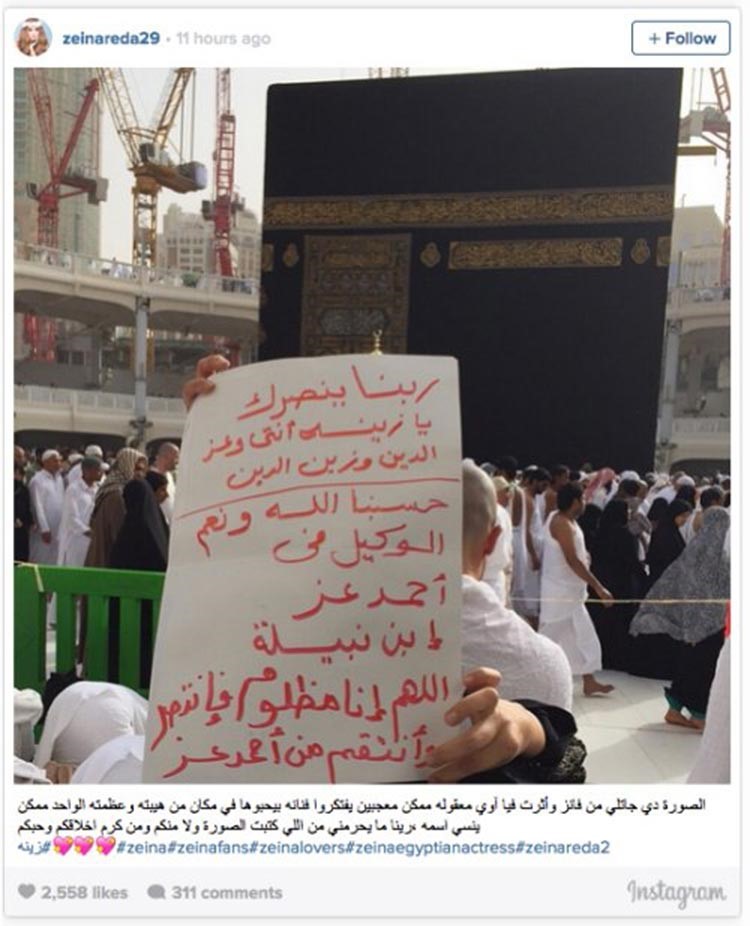 zeinareda29 • 11 hours ago
+ Follow
ربنا ينصرك
يا زينه انتى وعز
الدين وزين الدين
حسبنا الله ونعم
الوكيل فى
أحمد عز
إبن نبيلة
اللهم إنا مظلوم فإنتصر
وأنتقم من أحمد عز
الصورة دي جاتلي من فانز وأثرت فيا آوي معقوله ممكن معجبين يفتكروا فنانه بيحبوها في مكان من هيبته وعظمته الواحد ممكن
ينسي اسمه ،ربنا ما يحرمني من اللي كتبت الصورة ولا منكم ومن كرم اخلاقكم وحبكم
#زينه💖💖💖#zeina#zeinafans#zeinalovers#zeinaegyptianactress#zeinareda2
2,558 likes 311 comments
Instagram